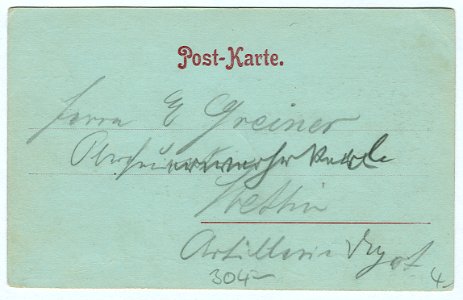 Post-Karte.
Herrn E Greiner
Stettin
Artillerie Depot
304-
4-